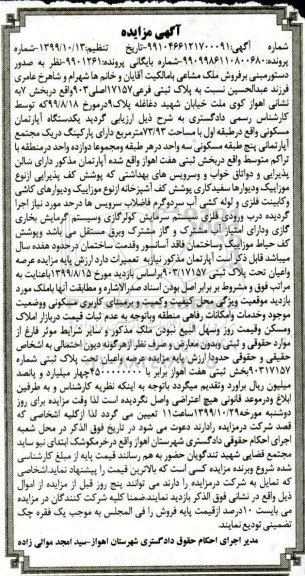 آگهی مزایده
شماره آگهی:۹۹۱۰۴۶۶۱۲۱۷۰۰۰۹۱-تاریخ تنظیم:۱۳۹۹/۱۰/۱۳-شماره
پرونده:۹۹۰۹۹۸۶۱۱۰۸۰۰۶۸۰-شماره بایگانی پرونده:۹۹۰۱۲۶۱-نظر به صدور
دستورمبنی برفروش ملک مشاعی بامالکیت آقایان و خانم ها شهرام و شاهرخ عامری
فرزند عبدالحسین نسبت به پلاک ثبتی فرعی۱۷۱۵۷اصلی۹۰۳واقع دربخش ۷به
نشانی اهواز کوی ملت خیابان شهید دغاغله پلاک۹درمورخ ۹۹/۸/۱۸که توسط
کارشناس رسمی دادگستری به شرح ذیل ارزیابی گردید یکدستگاه آپارتمان
مسکونی واقع درطبقه اول با مساحت ۷۳/۹۳مترمربع دارای پارکینگ دریک مجتمع
آپارتمانی پنج طبقه مسکونی سه واحد درهر طبقه ومجموعا دوازده واحد درمنطقه با
تراکم متوسط واقع دربخش ثبتی هفت اهواز واقع شده آپارتمان مذکور دارای سالن
پذیرایی و دواتاق خواب و سرویس های بهداشتی که پوشش کف پذیرایی ازنوع
موزاییک ودیوارها سفیدکاری پوشش کف آشپزخانه ازنوع موزاییک ودیوارهای کاشی
وکابینت فلزی و لوله کشی آب سردوگرم فاضلاب سرویس ها درحد مورد نیاز اجرا
گردیده درب ورودی فلزی سیستم سرمایش کولرگازی وسیستم گرمایش بخاری
گازی ودارای امتیاز آب مشترک و گاز مشترک وبرق مستقل می باشد وپوشش
کف حیاط موزاییک وساختمان فاقد آسانسور وقدمت ساختمان درحدود هفده سال
میباشد قابل ذکراست آپارتمان مذکور نیازبه تعمیرات دارد ارزش پایه مزایده عرصه
واعیان تحت پلاک ثبتی ۹۰۳/۱۷۱۵۷براساس بازدید مورخ ۱۳۹۹/۸/۱۵باعنایت به
مراتب فوق و مشروط بر برابر اصل بودن اسناد صدرالاشاره و مطابقت آنها باملک مورد
بازدید موقعیت ویژگی محل کیفیت وکمیت و برمبنای کاربری مسکونی ووضعیت
موجود وخدمات وامکانات رفاهی منطقه وباتوجه به عدم ثبات قیمت دربازار املاک
ومسکن وقیمت روز وسهل البیع نبودن ملک مذکور و سایر شرایط موثر فارغ از
موارد حقوقی و ثبتی وبدون معارض و صرف نظر ازهرگونه دیون احتمالی به اشخاص
حقیقی و حقوقی حدودا ارزش پایه مزایده عرصه واعیان تحت پلاک ثبتی شماره
۹۰۳/۱۷۱۵۷بخش ثبتی هفت اهواز برابر با ۴۵۰۰۰۰۰۰۰۰چهار میلیارد و پانصد
میلیون ریال برآورد وتقدیم میگردد باتوجه به اینکه نظریه کارشناس و به طرفین
ابلاغ ودرموعد قانونی هیچ اعتراضی واصل نگردیده است لذا وقت مزایده برای روز
دوشنبه مورخه۱۳۹۹/۱۰/۲۹ساعت۱۱ تعیین می گردد لذا ازکلیه اشخاصی که
قصد شرکت درمزایده رادارند دعوت می شود در تاریخ فوق الذکر در محل شعبه
اجرای احکام حقوقی دادگستری شهرستان اهواز واقع درخرمکوشک ابتدای نیو ساید
مجتمع قضایی شهید تندگویان حضور به هم رسانند قیمت پایه از مبلغ کارشناسی
شده شروع وبرنده مزایده کسی است که بالاترین قیمت را پیشنهاد نماید.اشخاصی
که تمایل به شرکت درمزایده را دارند می توانند پنج روز قبل از مزایده از اموال
ذیل واقع در نشانی فوق الذکر بازدید نمایند.ضمنا کلیه شرکت کنندگان در مزایده
می بایست ۱۰درصد ازقیمت پایه فروش را فی المجلس به موجب یک فقره چک
تضمینی تودیع نمایند.
مدیر اجرای احکام حقوق دادگستری شهرستان اهواز-سید امجد موالی زاده